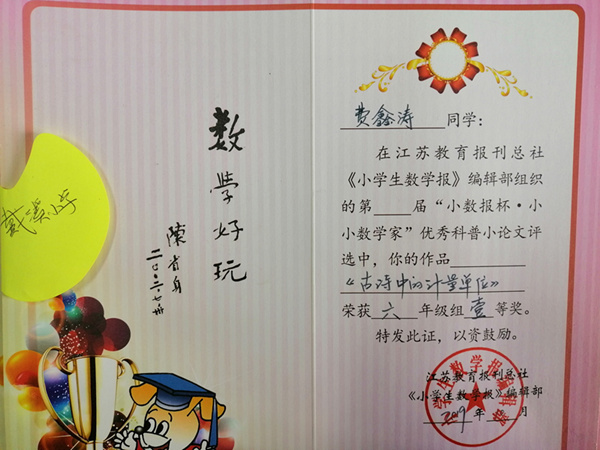 戴溪小学
數學好玩
陳省身
费鑫涛 同学：
在江苏教育报刊总社
《小学生数学报》编辑部组织
的第 届“小数报杯·小
小数学家”优秀科普小论文评
选中，你的作品
“古诗中的计量单位”
荣获 六 年级组 壹 等奖。
特发此证，以资鼓励。
江苏教育报刊总社
《小学生数学报》编辑部
2019 年 月